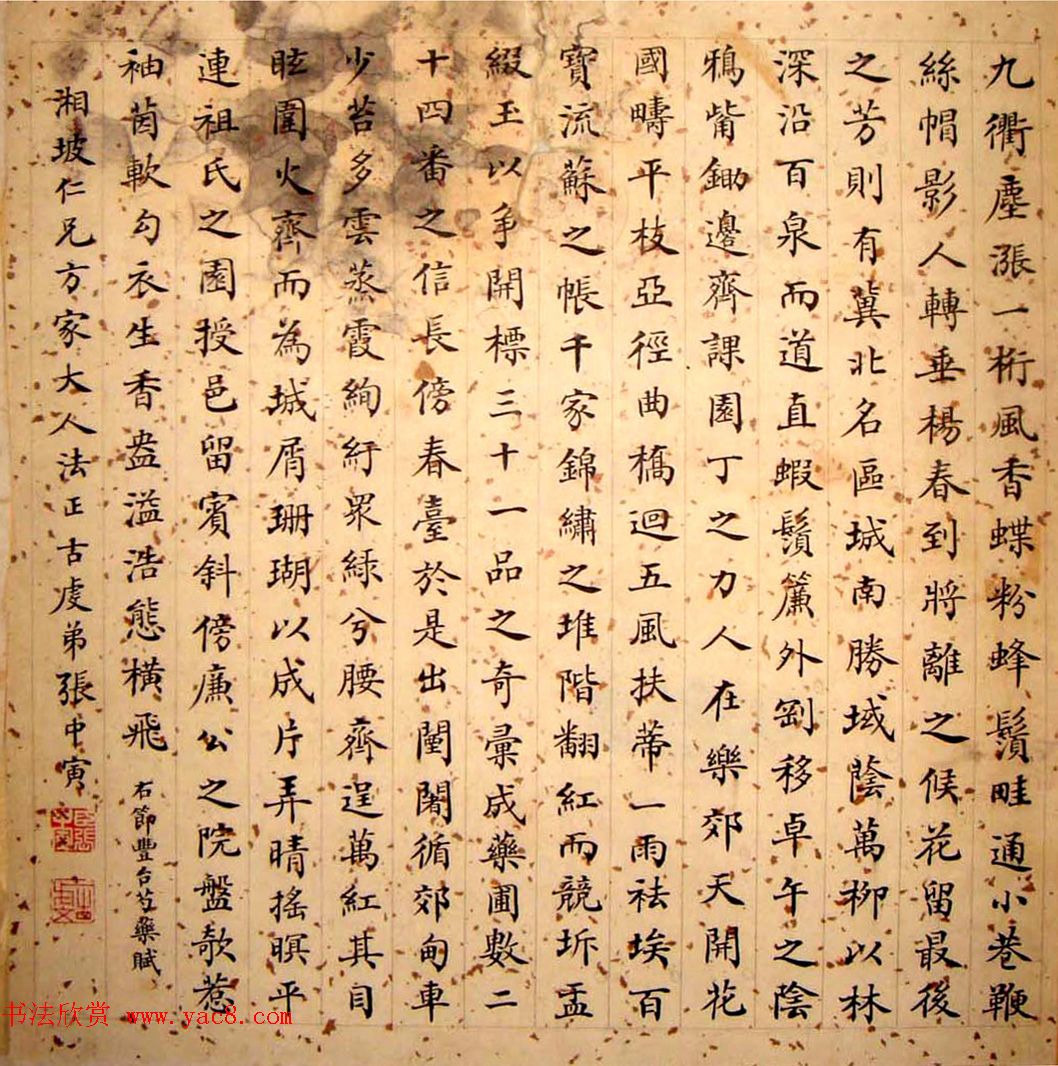 九衢塵漲一桁風香蝶粉蜂鬚畦通小巷鞭
絲帽影人轉垂楊春到將離之候花留最後
之芳則有冀北名區城南勝域蔭萬柳以林
深沿百泉而道直蝦鬚簾外劚移卓午之陰
鴉觜鋤邊齊課園丁之力人在樂郊天開花
國疇平枝亞徑曲橋迴五風扶蒂一雨袪埃百
寶流蘇之帳千家錦繡之堆階翻紅而競坼盂
綴玉以爭開標三十一品之奇彙成藥圃數二
十四番之信長傍春臺於是出闉闍循郊甸車
少苔多雲蒸霞絢紆眾綠兮腰齊逞萬紅其目
眩圍火齊而為城屑珊瑚以成片弄晴搖暝平
連祖氏之園授邑留賓斜傍廉公之院盤欹惹
袖茵軟勾衣生香盎溢浩態橫飛
右節豐台芍藥賦
湘坡仁兄方家大人法正古虔弟張中寅
书法欣赏 www.yac8.com